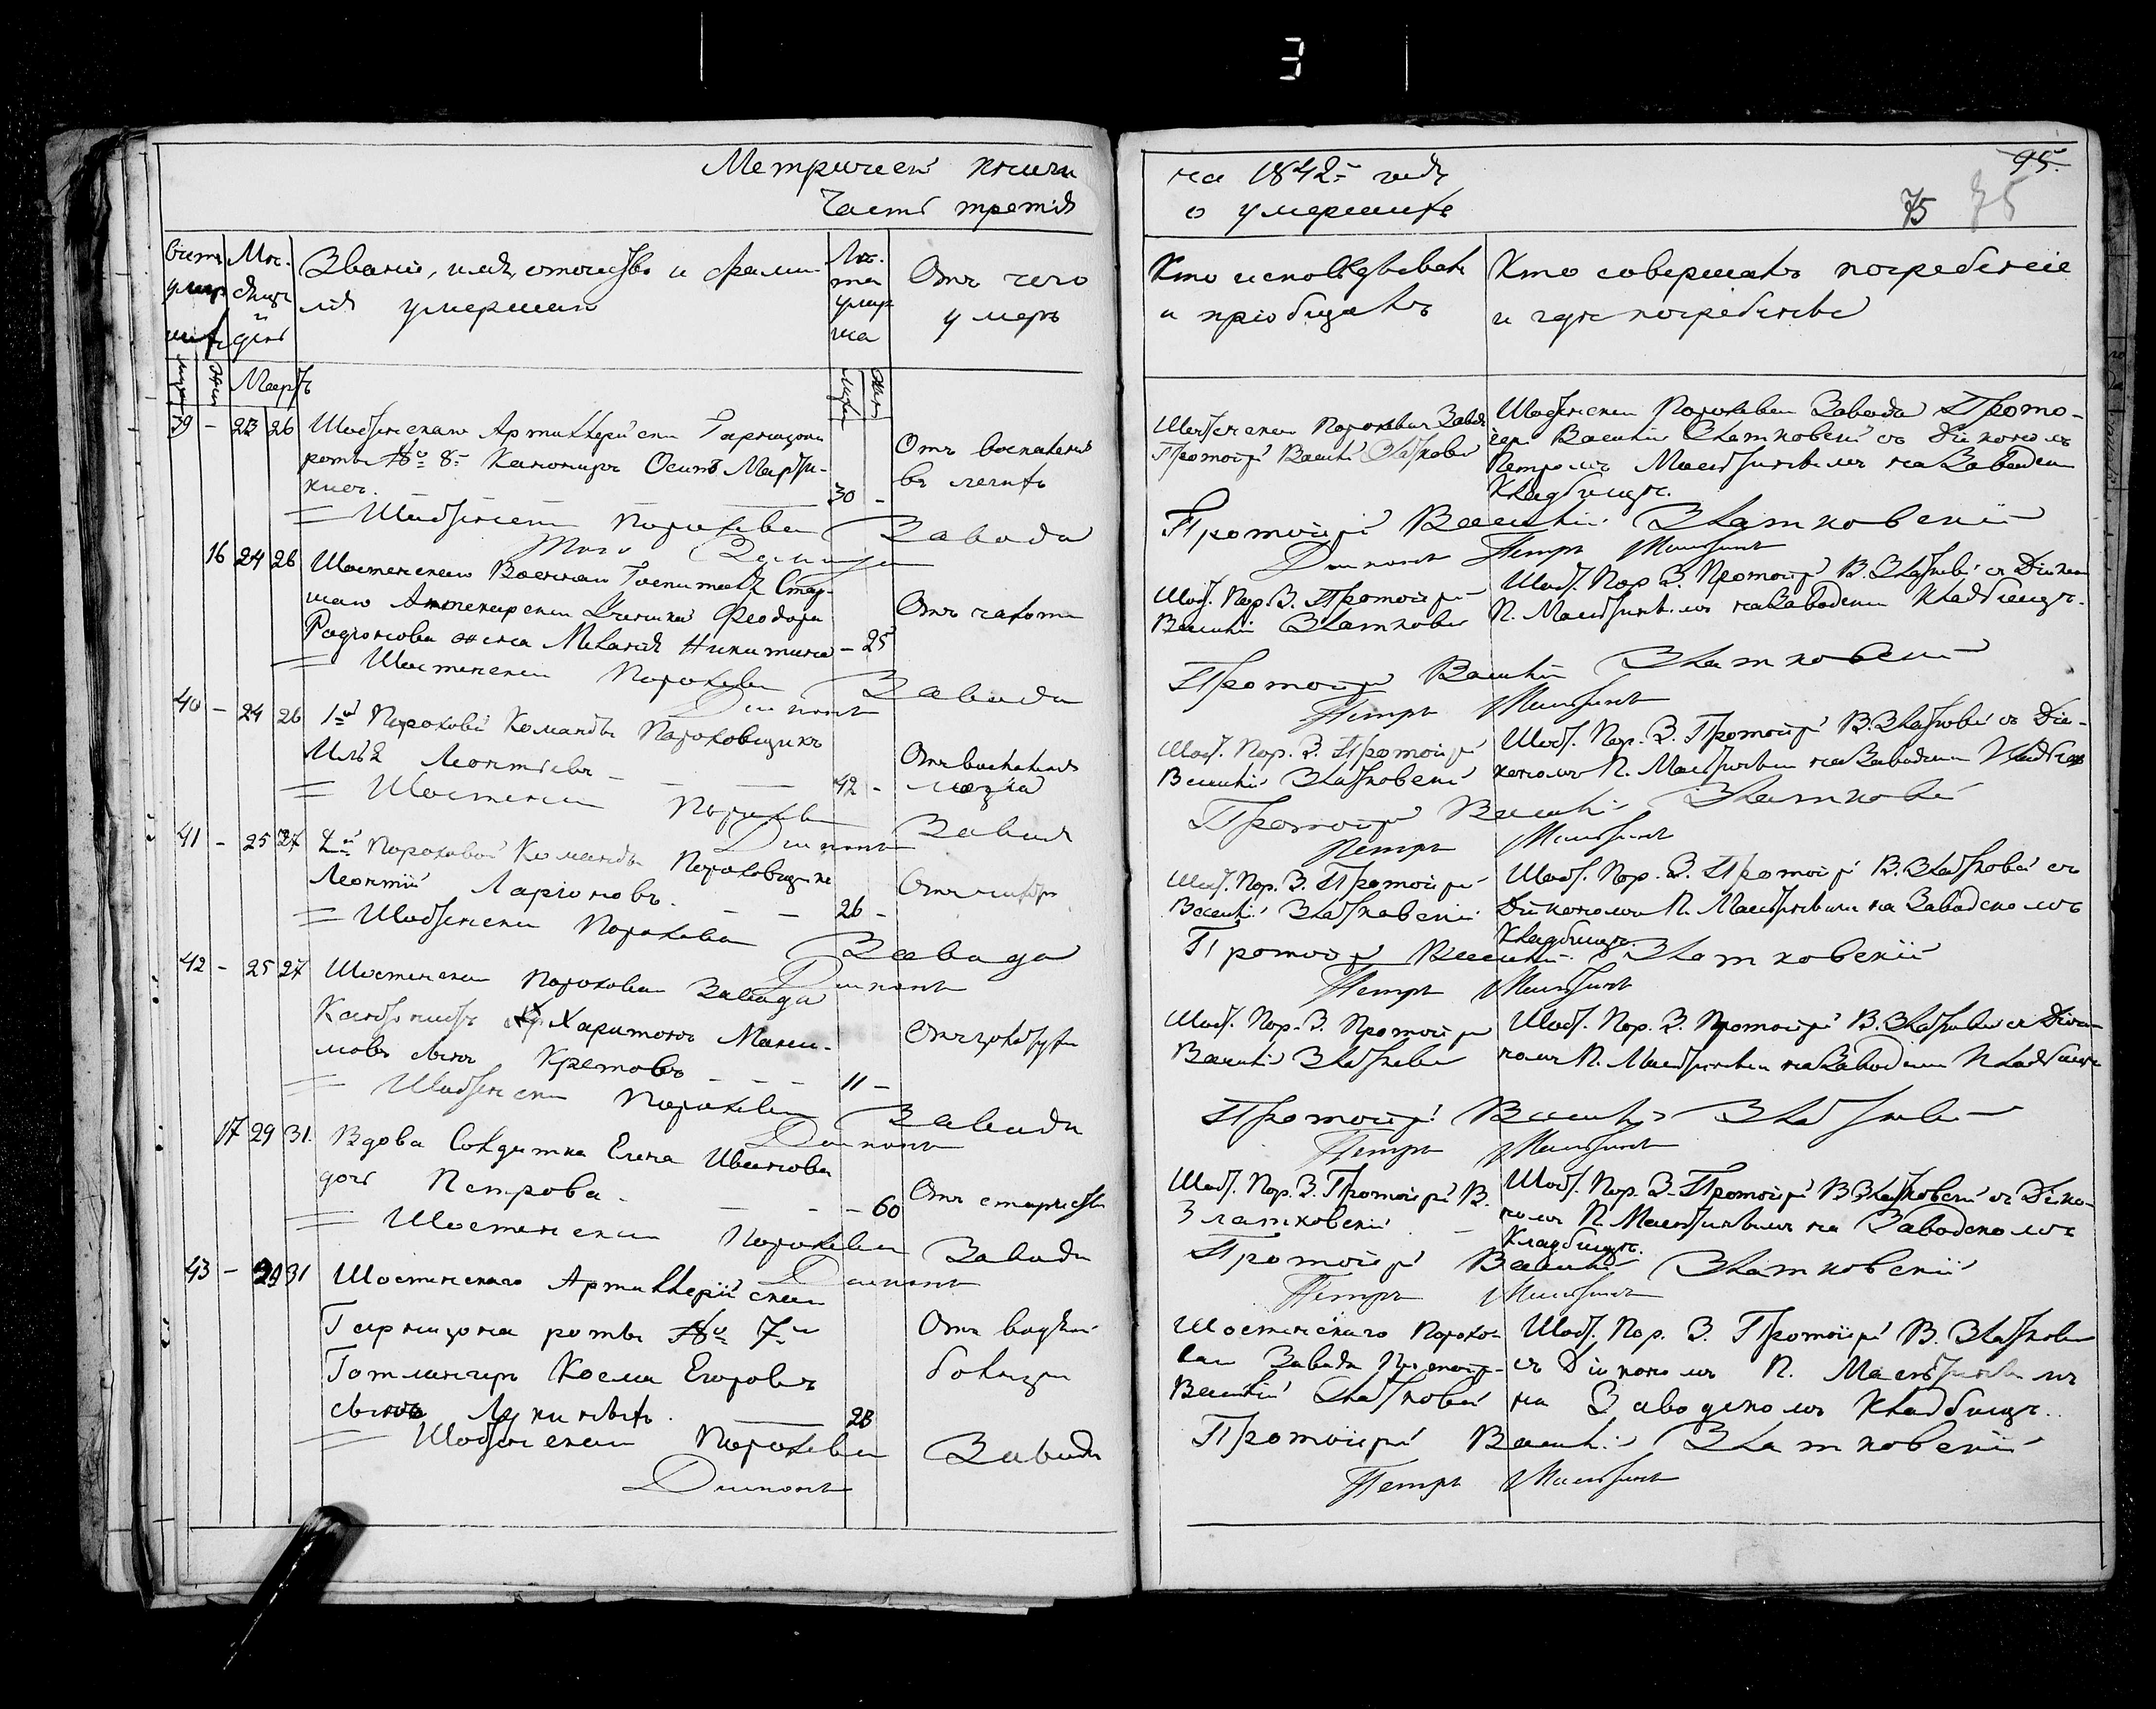 3
Метрической книги
Часть третія
на 1842= годъ
о умершихъ
95.
75 75
Счетъ умершихъ
Мѣсяцъ и день
Званіе, имя, отчество и фамилія умершаго
Лѣта умершаго
Отъ чего умеръ
Кто исповѣдывалъ и пріобщалъ
Кто совершалъ погребеніе и гдѣ погребены
Мартъ
39 - 23 26
Шостенскаго Артиллерійскаго Гарнизона
роты № 8й Канониръ Осипъ
30 -
Отъ воспаленія
въ легкихъ
Шостенскаго Пороховаго Завода
Протоіерей Василій Златковскій
Шостенскаго Пороховаго Завода Прото-
іерей Василій Златковскій съ Діакономъ
Петромъ на Заводскомъ
Кладбищѣ.
Шостенскаго Пороховаго Завода
Протоіерей Василій Златковскій
Діаконъ Петръ
16 24 26
Шостенскаго Военнаго Госпиталя Стар-
шаго Аптекарскаго Ученика Феодора
Родіонова жена Меланія Никитина - 25
Отъ чахотки
Шост. Пор. З. Протоіерей
Василій Златковскій
Шост. Пор. З. Протоіерей В. Златковскій съ Діакономъ
П. на Заводскомъ Кладбищѣ.
Шостенскаго Пороховаго Завода
Протоіерей Василій Златковскій
Діаконъ Петръ
40 - 24 26
1й Пороховой Команды Пороховщикъ
Илья Леонтіевъ - 42 -
Отъ воспаленія
мозга
Шост. Пор. З. Протоіерей
Василій Златковскій
Шост. Пор. З. Протоіерей В. Златковскій съ Діа-
кономъ П. на Заводскомъ Кладбищѣ
Шостенскаго Пороховаго Завода
Протоіерей Василій Златковскій
Діаконъ Петръ
41 - 25 27
2й Пороховой Команды Пороховщикъ
Леонтій Ларіоновъ. 26 -
Шост. Пор. З. Протоіерей
Василій Златковскій
Шост. Пор. З. Протоіерей В. Златковскій съ
Діакономъ П. на Заводскомъ
Кладбищѣ.
Шостенскаго Пороховаго Завода
Протоіерей Василій Златковскій
Діаконъ Петръ
42 - 25 27
Шостенскаго Пороховаго Завода
Кантонистъ Харитонъ Макси-
мовъ сынъ Кретовъ - 11 -
Отъ золотухи
Шост. Пор. З. Протоіерей
Василій Златковскій
Шост. Пор. З. Протоіерей В. Златковскій съ Діако-
номъ П. на Заводскомъ Кладбищѣ
Шостенскаго Пороховаго Завода
Протоіерей Василій Златковскій
Діаконъ Петръ
17 29 31.
Вдова Солдатка Елена Иванова
дочь Петрова - 60
Отъ старости
Шост. Пор. З. Протоіерей В.
Златковскій
Шост. Пор. З. Протоіерей В. Златковскій съ Діако-
номъ П. на Заводскомъ
Кладбищѣ.
Шостенскаго Пороховаго Завода
Протоіерей Василій Златковскій
Діаконъ Петръ
43 - 29 31
Шостенскаго Артиллерійскаго
Гарнизона роты № 7й
Гантлангеръ Косма Егоровъ
сынъ 28
Отъ водяной
болѣзни
Шостенскаго Порохо-
ваго Завода Протоіерей
Василій Златковскій
Шост. Пор. З. Протоіерей В. Златковскій
съ Діакономъ П.
на Заводскомъ Кладбищѣ.
Шостенскаго Пороховаго Завода
Протоіерей Василій Златковскій
Діаконъ Петръ